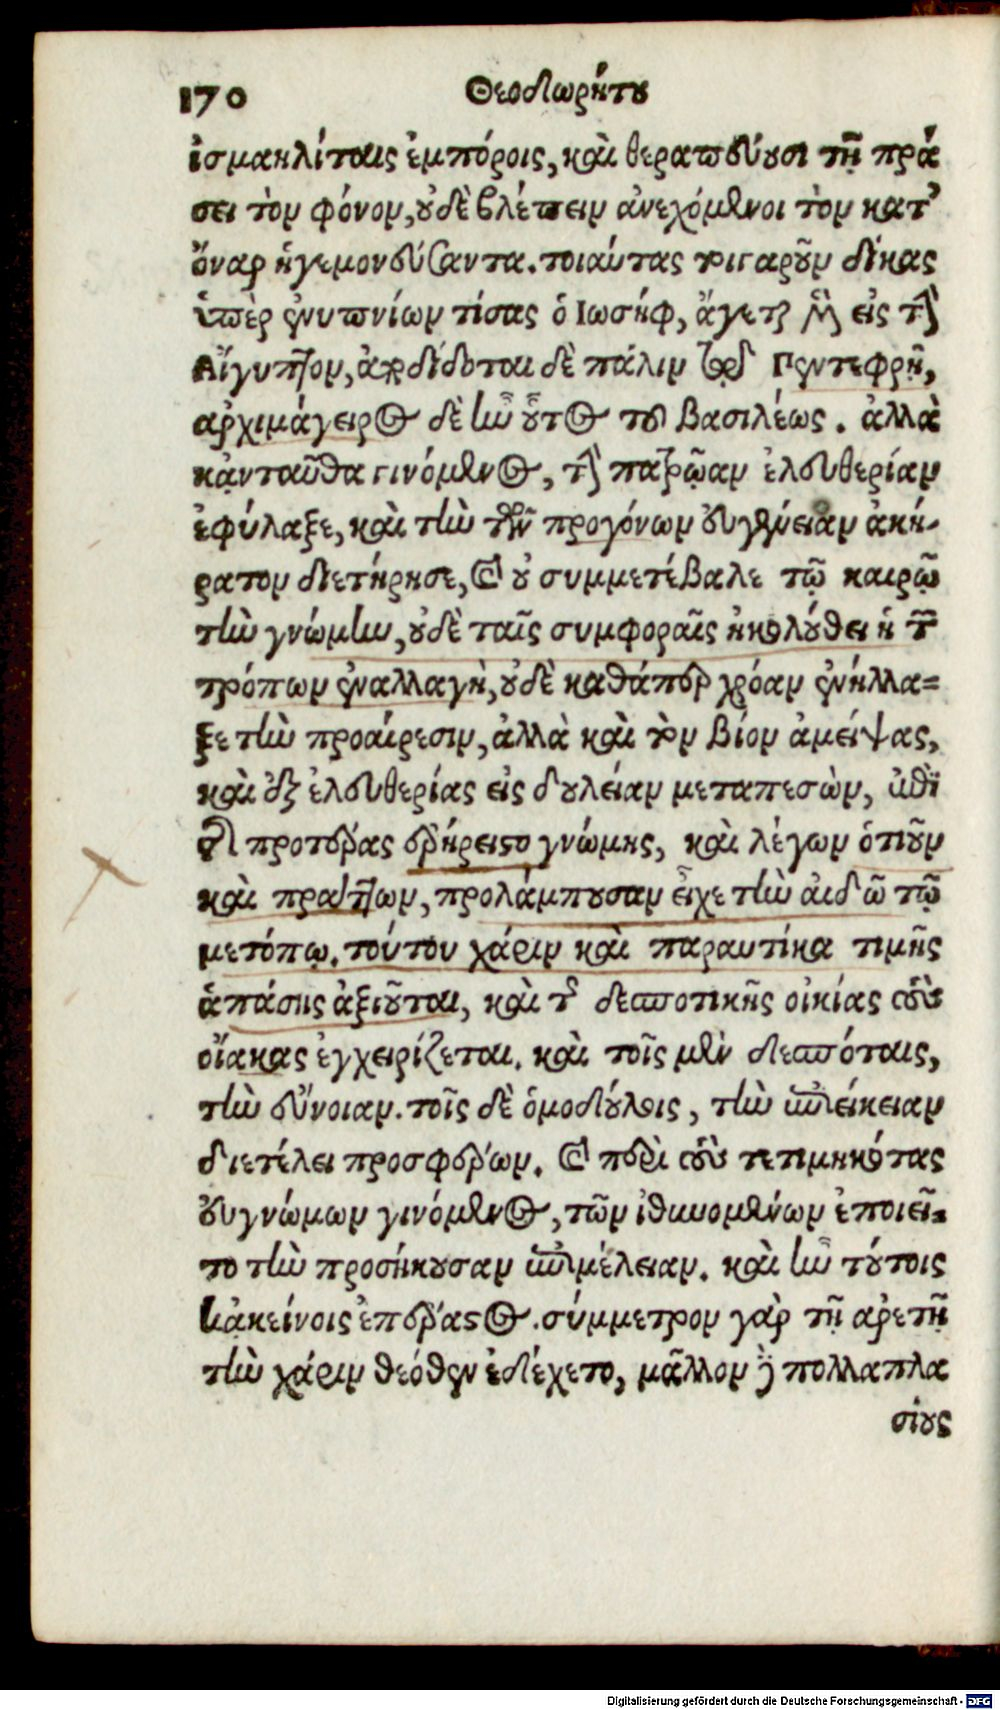 170 Θεοδωρήτου
ἰσμαηλίταις ἐμπόροις, καὶ θεραπεύουσι τῇ πρά
σει τὸν φόνον, οὐδὲ βλέπειν ἀνεχόμενοι τὸν κατ'
ὄναρ ἡγεμονεύσαντα. τοιαύτας τοιγαροῦν δίκας
ὑπὲρ ἐνυπνίων τίσας ὁ Ἰωσήφ, ἄγεται μὲν εἰς τὴν
Αἴγυπτον, ἀποδίδοται δὲ πάλιν τῷ Πεντεφρῇ,
ἀρχιμάγειρος δὲ ἦν οὗτος τοῦ βασιλέως. ἀλλὰ
κᾀνταῦθα γινόμενος, τὴν πατρῴαν ἐλευθερίαν
ἐφύλαξε, καὶ τὴν τῶν προγόνων εὐγένειαν ἀκή-
ρατον διετήρησε, καὶ οὐ συμμετέβαλε τῷ καιρῷ
τὴν γνώμην, οὐδὲ ταῖς συμφοραῖς ἠκολούθει ἡ τῶν
τρόπων ἐναλλαγὴ, οὐδὲ καθάπερ χρόαν ἐνήλλα=
ξε τὴν προαίρεσιν, ἀλλὰ καὶ τὸν βίον ἀμείψας,
καὶ ἐξ ἐλευθερίας εἰς δουλείαν μεταπεσὼν, ἐπὶ
τῆς προτέρας ἐρήρειστο γνώμης, καὶ λέγων ὁτιοῦν
καὶ πράττων, προλάμπουσαν εἶχε τὴν αἰδῶ τῷ
μετόπῳ. τούτου χάριν καὶ παραυτίκα τιμῆς
ἁπάσης ἀξιοῦται, καὶ τῆς δεσποτικῆς οἰκίας τοὺς
οἴακας ἐγχειρίζεται. καὶ τοῖς μὲν δεσπόταις,
τὴν εὔνοιαν. τοῖς δὲ ὁμοδούλοις, τὴν ἐπιείκειαν
διετέλει προσφέρων. καὶ περὶ τοὺς τετιμηκότας
εὐγνώμων γινόμενος, τῶν ἰθυνομένων ἐποιεῖ-
το τὴν προσήκουσαν ἐπιμέλειαν. καὶ ἦν τούτοις
κᾀκείνοις ἐπέραστος. σύμμετρον γὰρ τῇ ἀρετῇ
τὴν χάριν θεόθεν ἐδέχετο, μᾶλλον δὲ πολλαπλα
σίους
Digitalisierung gefördert durch die Deutsche Forschungsgemeinschaft - DFG